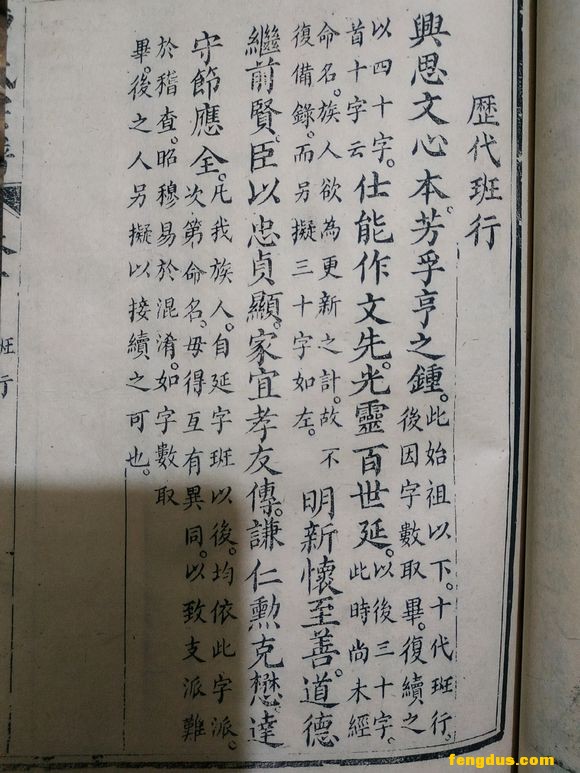 歷代班行
興思文心本。芳孚亨之鍾。
此始祖以下。十代班行。
後因字數取畢。復續之
以四十字。
首十字云
仕能作文先。光靈百世延。
以後三十字。
此時尚未經
命名。族人欲為更新之計。故不
復備錄。而另擬三十字如左。
明新懷至善。道德
繼前賢。臣以忠貞顯。家宜孝友傳。謙仁勳克懋。達
守節應全。
凡我族人。自延字班以後。均依此字派。
次第命名。毋得互有異同。以致支派難
於稽查。昭穆易於混淆。如字數取
畢。後之人另擬以接續之可也。
班行
fengdus.com